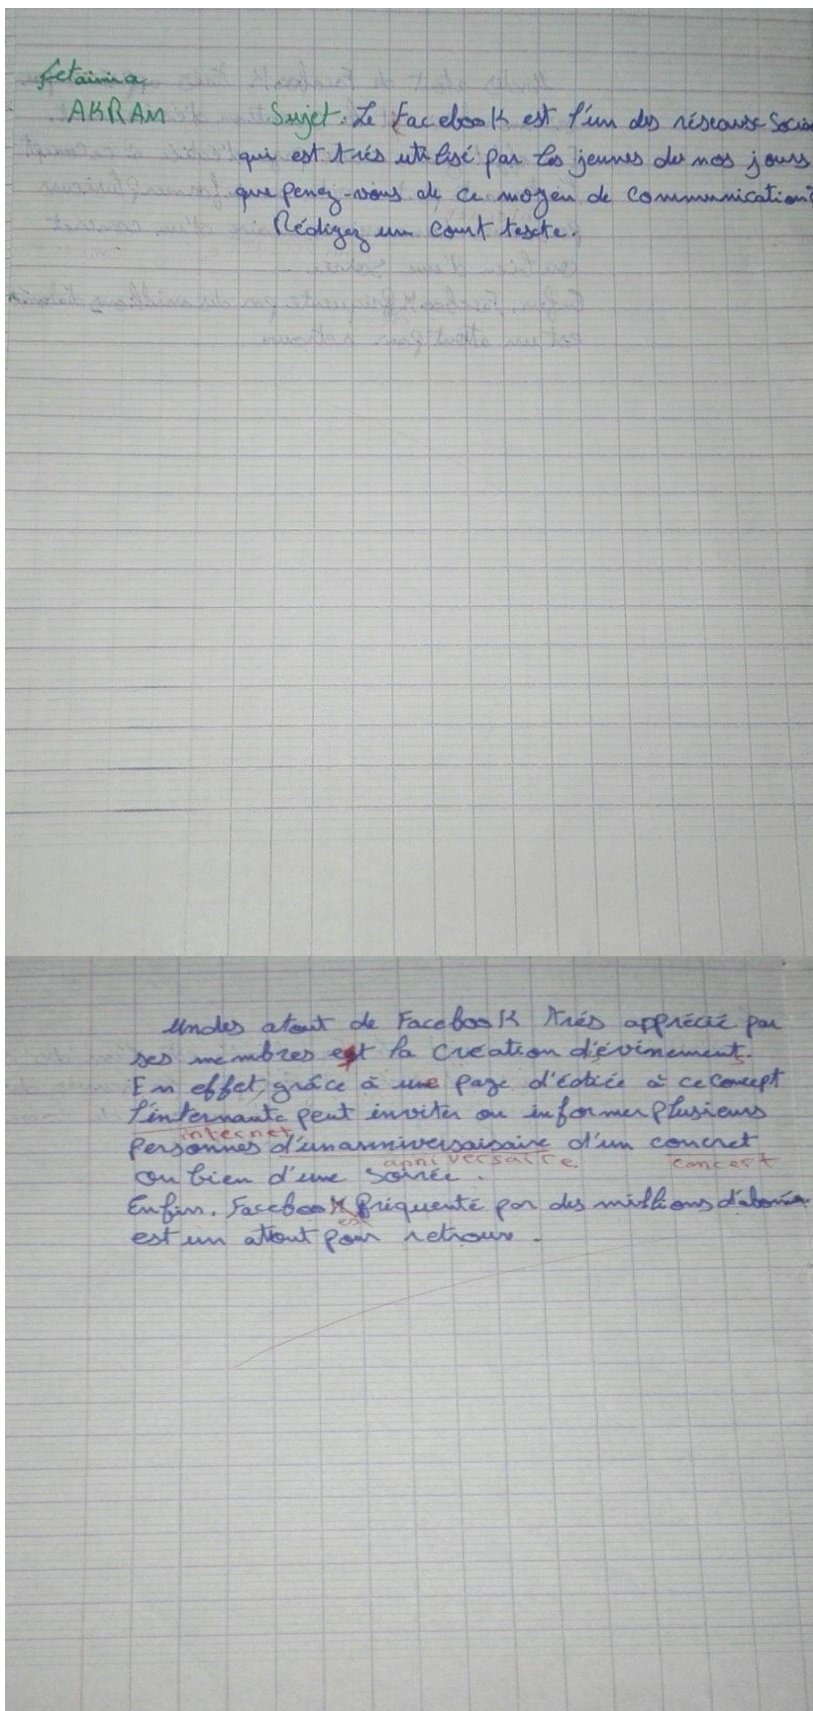 fetaimia
AKRAM
Sujet: Le Facebook est l'un des réseause Socia
qui est trés utilisé par les jeunes de nos jours
que penez-vous de ce moyen de communication?
Rédigez un court texte.
Undes atout de Facebook trés apprécié par
ses membres est la création d'évinement.
En effet, grâce à une page d'édiée à ce concept
l'internaute peut inviter ou informer plusieurs
internet
personnes d'unanniversaisaire d'un concret
anniversaire concert
ou bien d'une soirée.
Enfin. Facebook fréquenté par des millions d'abonés
est
est un atout pour retrouv.